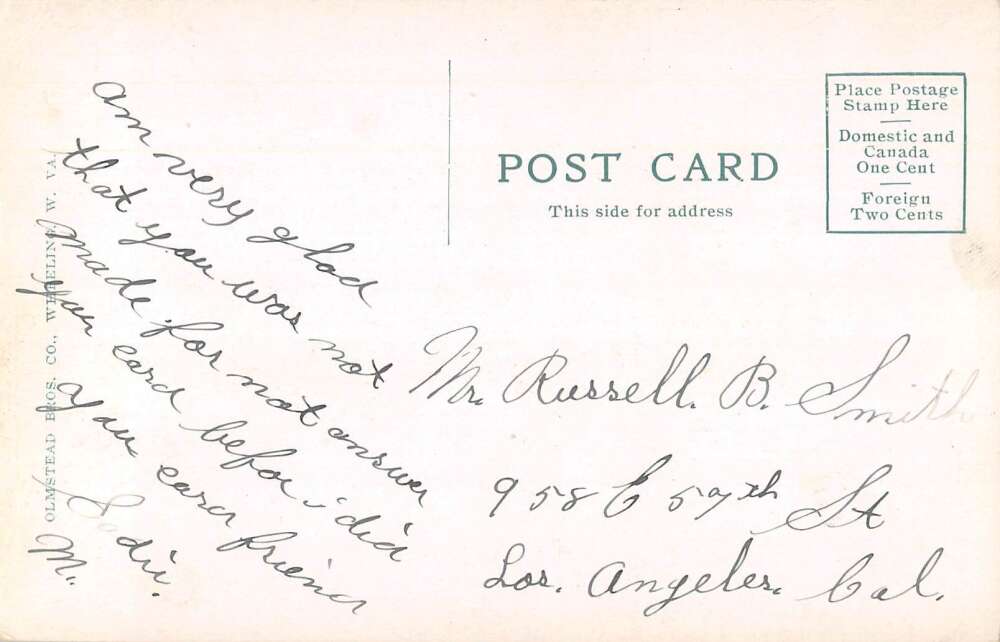 am very glad
that you was not
made for not answer
you card befor i did
your card friend
Sadie.
M.
OLMSTEAD BROS. CO., WHEELING, W. VA.
POST CARD
This side for address
Place Postage
Stamp Here
Domestic and
Canada
One Cent
Foreign
Two Cents
Mr. Russell. B. Smith
958 E 57th St
Los. Angeles. Cal.